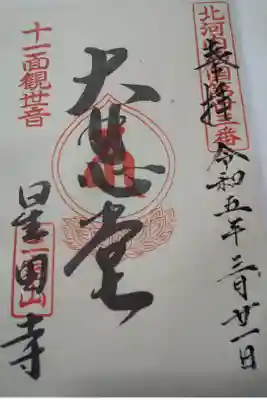 奉拝
令和五年三月廿一日
大悲堂
十一面觀世音
星田寺